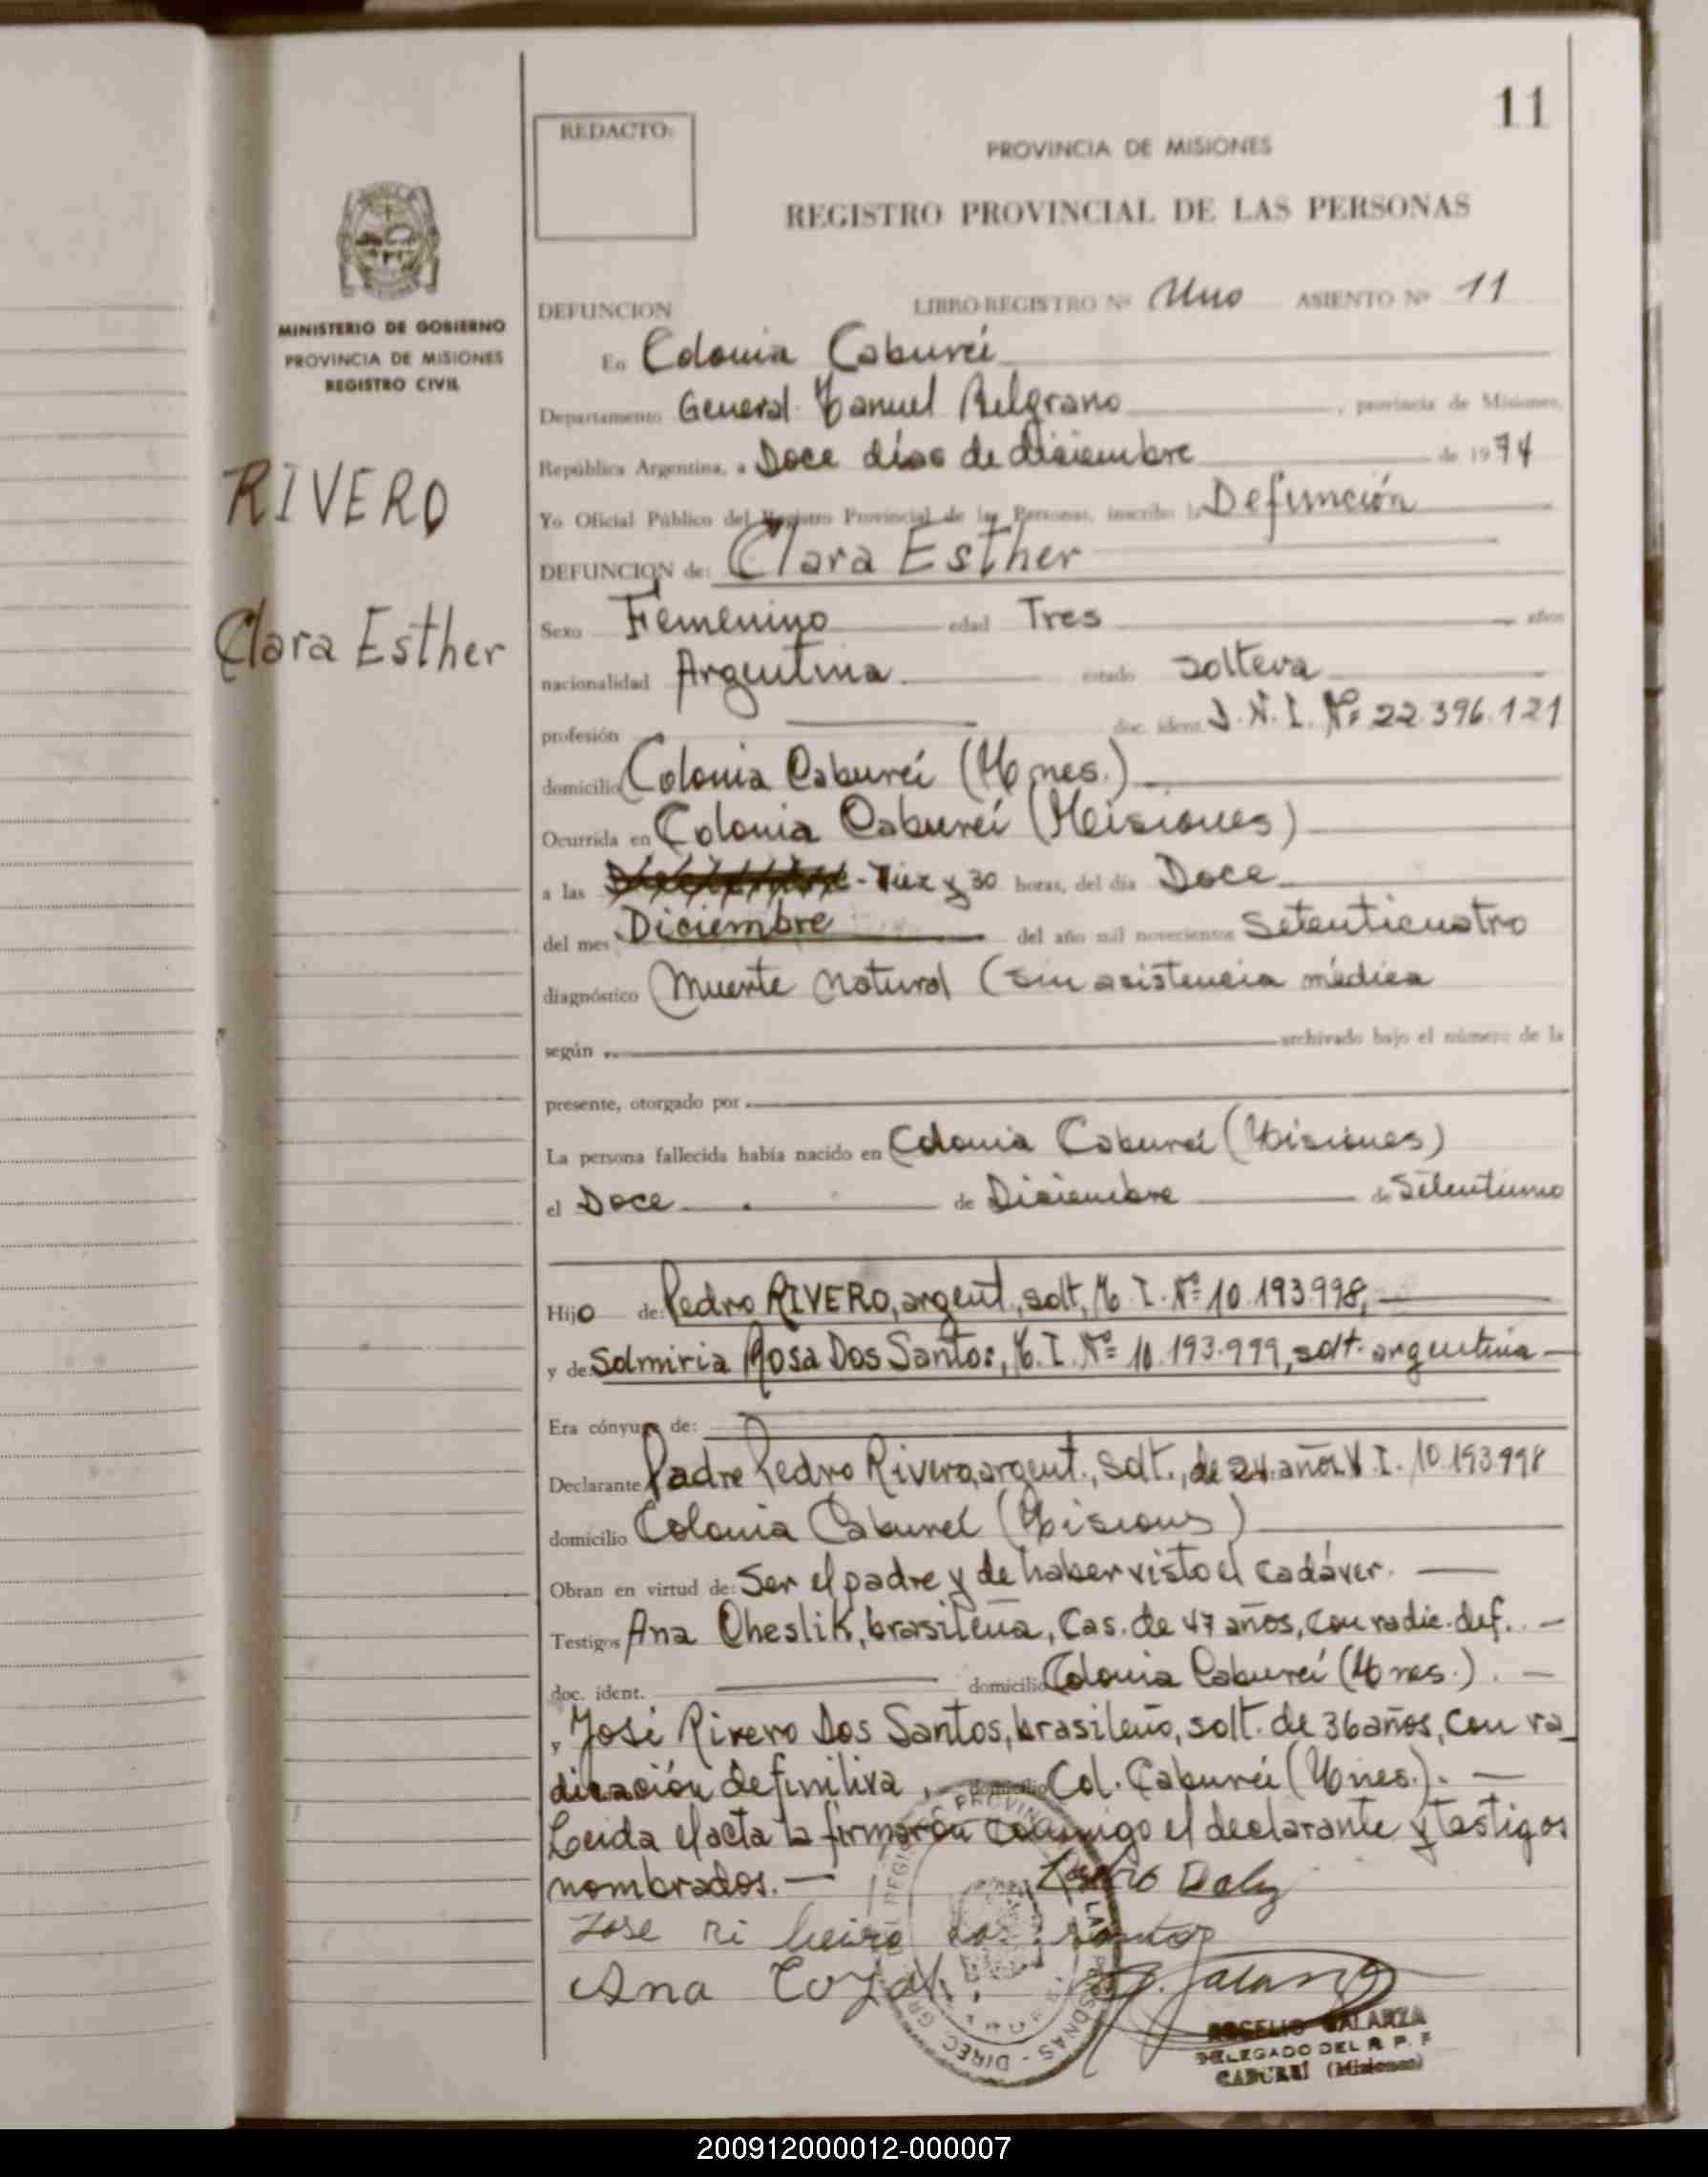 11
REDACTO:
PROVINCIA DE MISIONES
REGISTRO PROVINCIAL DE LAS PERSONAS
MINISTERIO DE GOBIERNO
PROVINCIA DE MISIONES
REGISTRO CIVIL
RIVERO
Clara Esther
DEFUNCION LIBRO REGISTRO Nº Uno ASIENTO Nº 11
En Colonia Caburei
Departamento General Manuel Belgrano, provincia de Misiones,
República Argentina, a Doce días de diciembre de 1974
Yo Oficial Público del Registro Provincial de las Personas, inscribo la Defunción
DEFUNCION de: Clara Esther
Sexo Femenino edad Tres años
nacionalidad Argentina estado soltera
profesión doc. ident. D.N.I. Nº 22.396.121
domicilio Colonia Caburei (Mnes.)
Ocurrida en Colonia Caburei (Misiones)
a las - Diez y 30 horas, del día Doce
del mes Diciembre del año mil novecientos Setenticuatro
diagnóstico Muerte natural (sin asistencia médica
según archivado bajo el número de la
presente, otorgado por
La persona fallecida había nacido en Colonia Caburei (Misiones)
el Doce de Diciembre de Setentiuno
Hijo de: Pedro RIVERO, argent., solt, M. I. Nº 10.193.998,
y de: Solmiria Rosa Dos Santos, M. I. Nº 10.193.999, solt. argentina
Era cónyuge de:
Declarante Padre Pedro Rivero, argent., solt., de 24 años M. I. 10.193.998
domicilio Colonia Caburei (Misiones)
Obran en virtud de: Ser el padre y de haber visto el cadáver.
Testigos Ana Cheslik, brasileña, Cas. de 47 años, con radic. def.
doc. ident. domicilio Colonia Caburei (Mnes.).
y José Rivero Dos Santos, brasileño, solt. de 36 años, con ra_
dicación definitiva, domicilio Col. Caburei (Mnes.).
Leida el acta la firmaron conmigo el declarante y testigos
nombrados.
Jose ri beiro dos santos
Ana
ROGELIO GALARZA
DELEGADO DEL R. P. P
CABUREÍ (Misiones)
200912000012-000007